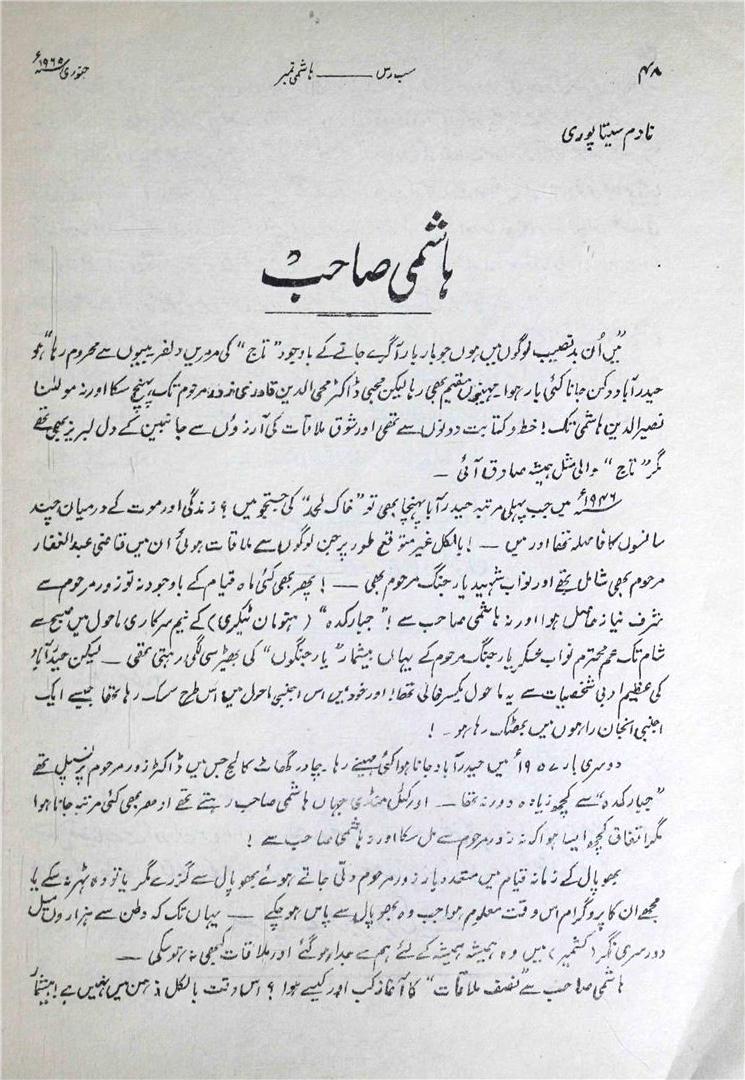 ۴۸
سب رس ——— ہاشمی نمبر
جنوری ۱۹۶۵ء
نادم سیتاپوری
ہاشمی صاحبؒ
"میں اُن بدنصیب لوگوں میں ہوں جو بار بار آگرے جانے کے باوجود "تاج" کی مرمریں دلفریبیوں سے محروم رہا" ہو
حیدرآباد دکن جانا کئی بار ہوا۔ مہینوں مقیم بھی رہا لیکن محبی ڈاکٹر محی الدین قادری زور مرحوم تک پہنچ سکا اور نہ مولٰنا
نصیرالدین ہاشمی تک! خط و کتابت دونوں سے تھی اور شوق ملاقات کی آرزوئں سے جانبین کے دل لبریز بھی تھے
مگر "تاج" والی مثل ہمیشہ صادق آئی ۔
۱۹۴۶ء میں جب پہلی مرتبہ حیدرآباد پہنچا بھی تو "خاک لحد" کی جستجو میں ؟ زندگی اور موت کے درمیان چند
سانسوں کا فاصلہ تھا اور میں ۔۔! بالکل غیر متوقع طور پر جن لوگوں سے ملاقات ہوئی اُن میں قاضی عبدالغفار
مرحوم بھی شامل تھے اور نواب شہید یار جنگ مرحوم بھی ۔۔! پھر بھی کئی ماہ قیام کے باوجود نہ تو زور مرحوم سے
شرف نیاز حاصل ہوا اور نہ ہاشمی صاحب سے! "جبارکدہ" (ہنومان ٹیکری) کے نیم سرکاری ماحول میں صبح سے
شام تک عم محترم نواب عسکر یار جنگ مرحوم کے یہاں بیشمار "یار جنگوں" کی بھیڑ سی لگی رہتی تھی ۔۔ لیکن حیدرآباد
کی عظیم ادبی شخصیات سے یہ ماحول یکسر خالی تھا! اور خود میں اس اجنبی ماحول میں اس طرح سسک رہا تھا جیسے ایک
اجنبی انجان راہوں میں بھٹک رہا ہو ۔ !
دوسری بار ۱۹۵۷ء میں حیدرآباد جانا ہوا کئی مہینے رہا۔ چادر گھاٹ کالج جس میں ڈاکٹر زور مرحوم پرنسپل تھے
"جبارکدہ" سے کچھ زیادہ دور نہ تھا ۔۔ اور کٹل منڈی جہاں ہاشمی صاحب رہتے تھے ادھر بھی کئی مرتبہ جانا ہوا
مگر اتفاق کچھ ایسا ہوا کہ نہ زور مرحوم سے مل سکا اور نہ ہاشمی صاحب سے !
بھوپال کے زمانہ قیام میں متعدد بار زور مرحوم دلی جاتے ہوئے بھوپال سے گزرے مگر یا تو وہ ٹھہر نہ سکے یا
مجھے ان کا پروگرام اس وقت معلوم ہوا جب وہ بھوپال سے پاس ہو چکے ۔۔ یہاں تک کہ وطن سے ہزاروں میل
دور سری نگر (کشمیر) میں وہ ہمیشہ ہمیشہ کے لئے ہم سے جدا ہو گئے اور ملاقات کبھی نہ ہو سکی ۔۔
ہاشمی صاحب سے "نصف ملاقات" کا آغاز کب اور کیسے ہوا ؟ اس وقت بالکل ذہن میں نہیں ہے! بیشمار